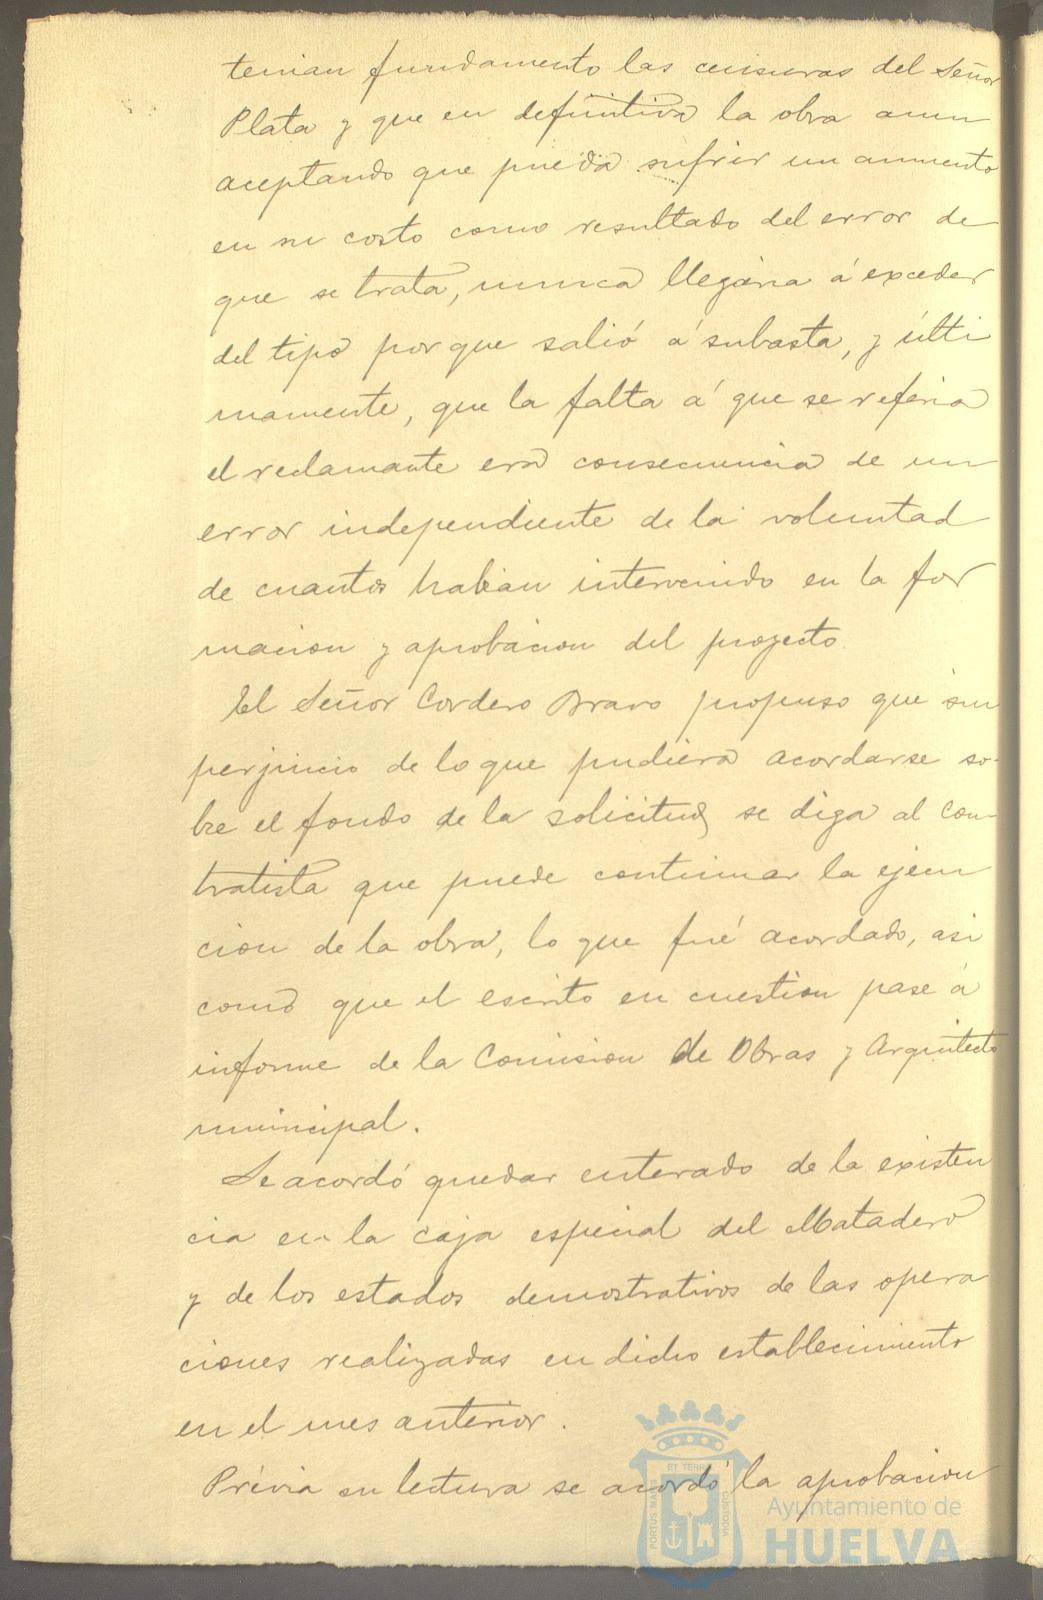 tenian fundamento las censuras del Señor
Plata y que en definitiva la obra aun
aceptando que pueda sufrir un aumento
en su costo como resultado del error de
que se trata, nunca llegaria á exceder
del tipo por que salió á subasta, y ulti
mamente, que la falta á que se referia
el reclamante era consecuencia de un
error independiente de la voluntad
de cuantos habian intervenido en la for
macion y aprobacion del proyecto.
El Señor Cordero Bravo propuso que sin
perjuicio de lo que pudiera acordarse so-
bre el fondo de la solicitud, se diga al Con-
tratista que puede continuar la ejecu
cion de la obra, lo que fué acordado, asi
como que el escrito en cuestion pase á
informe de la Comision de Obras y Arquitecto
municipal.
Se acordó quedar enterado de la existen
cia en la caja especial del Matadero
y de los estados demostrativos de las opera
ciones realizadas en dicho establecimiento
en el mes anterior.
Prévia su lectura se acordó la aprobacion
PORTUS MARIS ET TERRE CUSTODIA
Ayuntamiento de
HUELVA